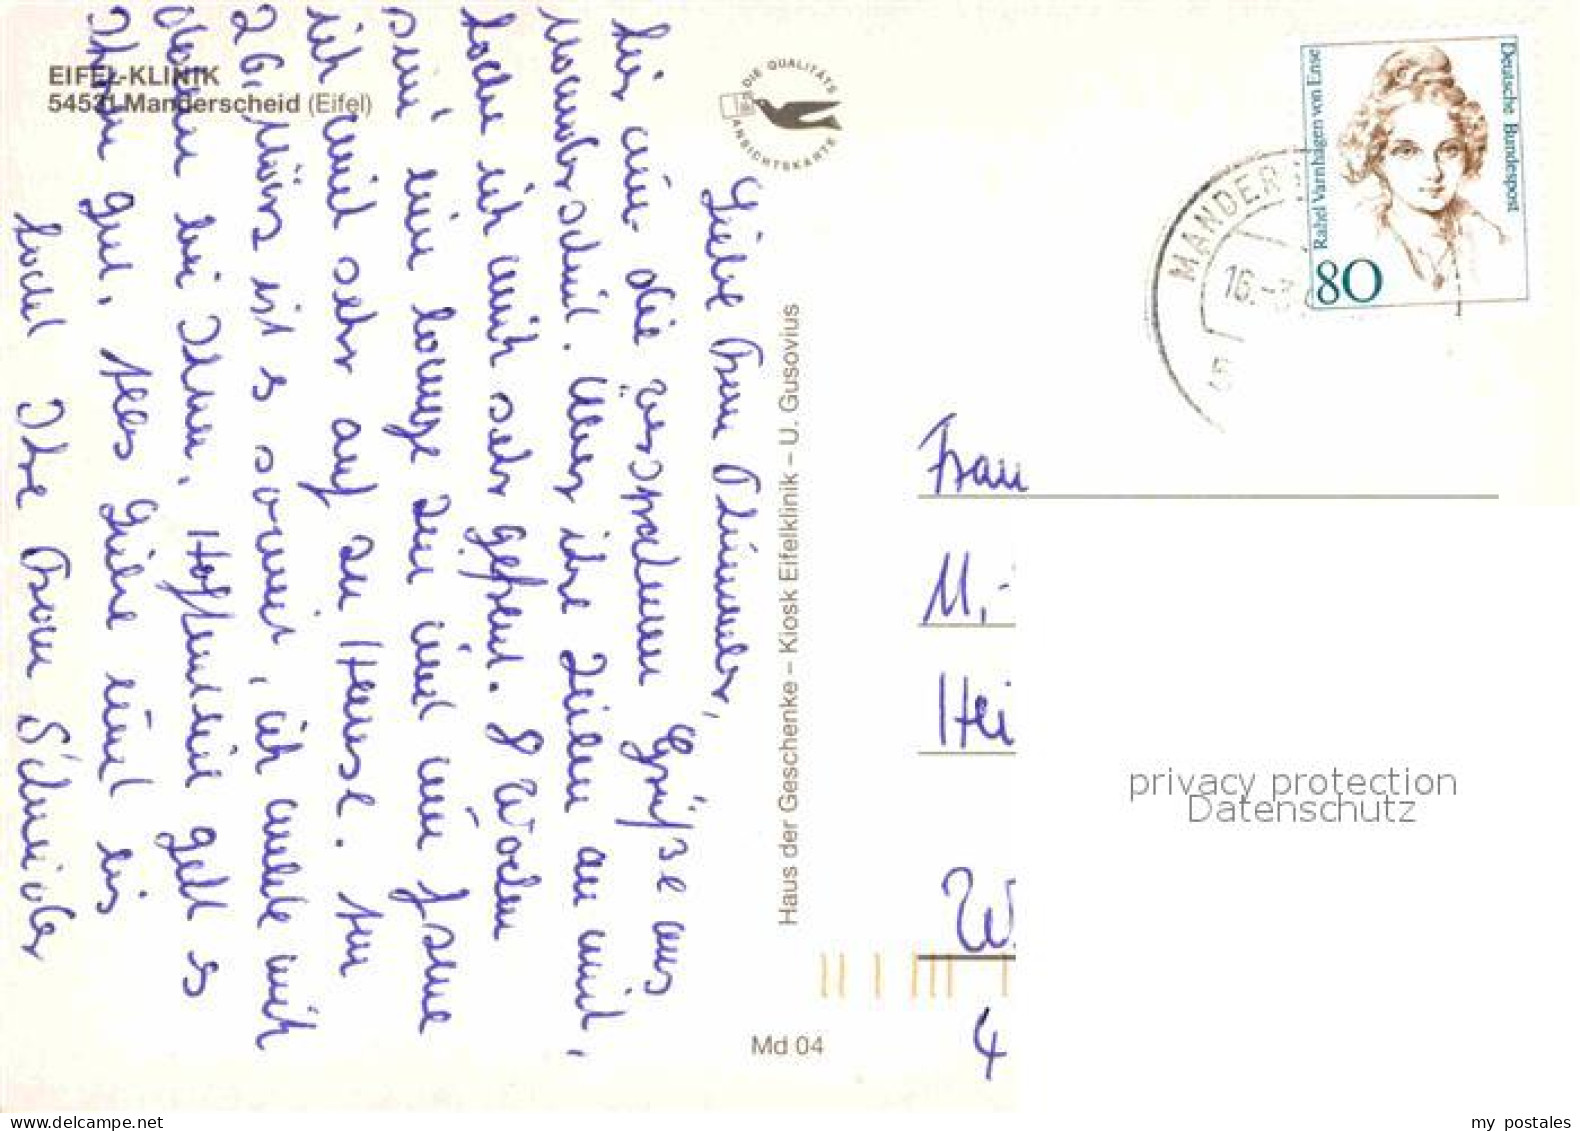 EIFEL-KLINIK
54531 Manderscheid (Eifel)
DIE QUALITÄTS
ANSICHTSKARTE
Liebe Frau
für die verspäteten Grüße aus
Manderscheid. Über ihre Zeilen an mich,
habe ich mich sehr gefreut. 8 Wochen
sind eine lange Zeit und nun freue
ich mich sehr auf zu Hause. Am
26. März ist s soweit, ich melde mich
dann bei Ihnen. Hoffentlich geht s
Ihnen gut. Alles Liebe und bis
bald Ihre Frau Schneider
Haus der Geschenke – Kiosk Eifelklinik – U. Gusovius
Md 04
Deutsche Bundespost
Rahel Varnhagen von Ense
80
MANDER
16.-3
5
Frau
M.-
Hei
W
4
privacy protection
Datenschutz
www.delcampe.net
my postales